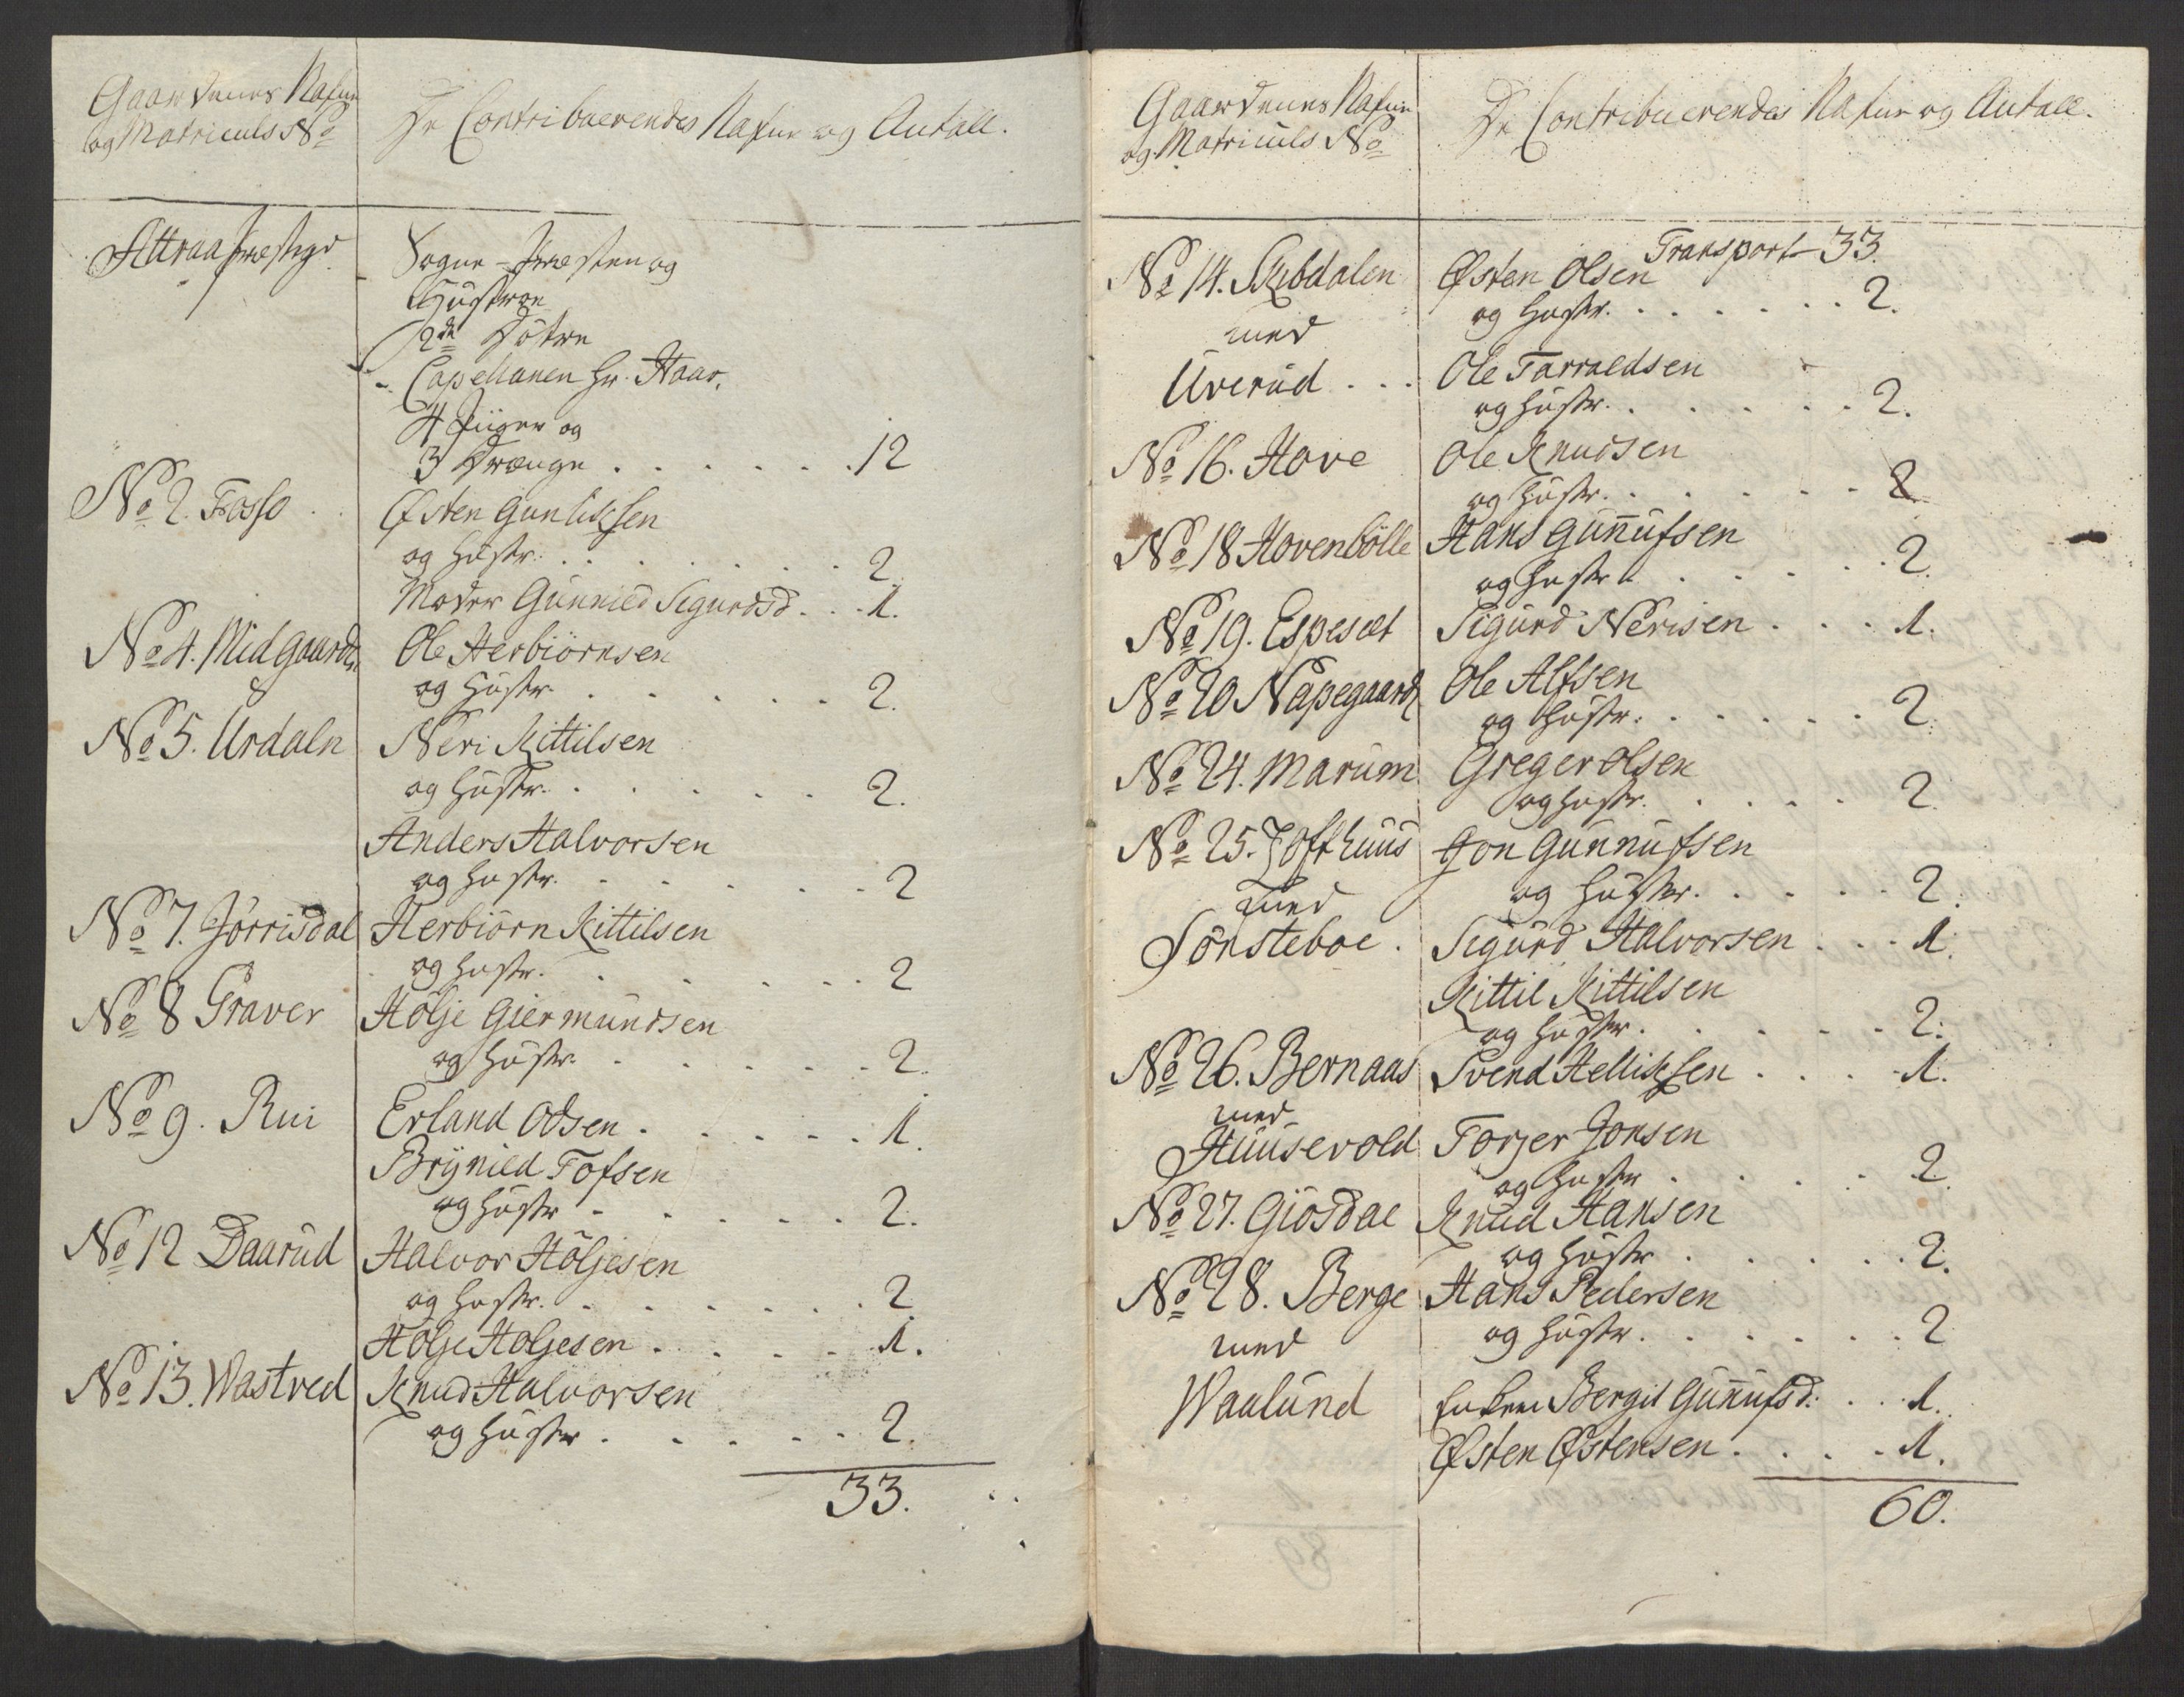 Gaardenes Nafne
og Matriculs No
De Contribuerendes Nafne og Antall.
Attraa Præstegd
Sogne-Præsten og
Hustroe
2de Döttre
Capellanen Hr. Haar,
4 Piiger og
3 Drænge . . . . . . 12
No 2. Fosso
Østen Gunlichsen
og Hustr. . . . . . . 2
Moder Gunnild Sigurdsd. . . 1.
No 4. Midgaarden
Ole Herbiörnsen
og Hustr. . . . . . 2.
No 5. Urdaln
Neri Kittilsen
og Hustr. . . . . . 2.
Anders Halvorsen
og Hustr. . . . . . 2
No 7. Jörrisdal
Herbiörn Kittilsen
og Hustr. . . . . . 2
No 8 Graver
Hölje Giermundsen
og Hustr. . . . . . 2.
No 9. Rui
Erland Odsen . . . . . 1.
Brÿnild Tofsen
og Hustr . . . . . 2.
No 12 Daarud
Halvor Höljesen
og Hustr. . . . . . . 2
Hölje Holjesen . . . . 1.
No 13. Wastved
Knud Halvorsen
og Hustr . . . . . 2.
33.
Gaardenes Nafne
og Matriculs No
De Contribuerendes Nafne og Antall.
Transport 33.
No 14. Skibdalen
Østen Olsen
og Hustr. . . . . . . 2.
med
Uverud . . .
Ole Tarraldsen
og Hustr. . . . . . 2.
No 16. Hove
Ole Knudsen
og Hustr. . . . . . 2
No 18 Hovenbölle
Hans Gun̄ufsen
og Hustr . . . . . 2.
No 19. Espeset
Sigurd Nerisen . . . 1.
No 20 Napegaard
Ole Alfsen
og Hustr. . . . . . 2.
No 24. Marum
Greger Olsen
og Hustr. . . . . 2.
No 25. Tofthuus
Jon Gunnufsen
og Hustr. . . . . 2.
med
Sönsteboe .
Sigurd Halvorsen . . . 1.
Kittil Kittilsen
og Hustr. . . . . . 2.
No 26. Bernaas
Svend Hellichsen . . . . 1.
med
Huusevold
Torjer Jonsen
og Hustr . . . . 2
No 27. Giösdal
Knud Hansen
og Hustr . . . . . 2.
No 28. Berge
Hans Pedersen
og Hustr. . . . . . 2
med
Waalund
Enken Bergit Gun̄ufsd. . . 1.
Østen Østensen . . . . 1.
60.